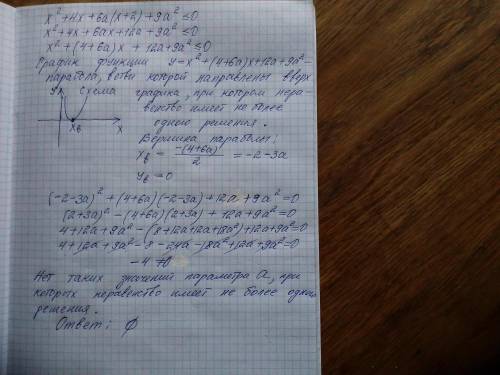 x² + 4x + 6a(x+2) + 9a² ≤ 0
x² + 4x + 6ax + 12a + 9a² ≤ 0
x² + (4+6a)x + 12a + 9a² ≤ 0
График функции y = x² + (4+6a)x + 12a + 9a² –
парабола, ветви которой направлены вверх
y схема графика, при котором нера-
венство имеет не более
одного решения.
xв x
Вершина параболы:
xв = -(4+6a)/2 = -2-3a
yв = 0
(-2-3a)² + (4+6a)(-2-3a) + 12a + 9a² = 0
(2+3a)² - (4+6a)(2+3a) + 12a + 9a² = 0
4 + 12a + 9a² - (8+12a+12a+18a²) + 12a + 9a² = 0
4 + 12a + 9a² - 8 - 24a - 18a² + 12a + 9a² = 0
-4 ≠ 0
Нет таких значений параметра a, при
которых неравенство имеет не более одного
решения.
Ответ: ∅